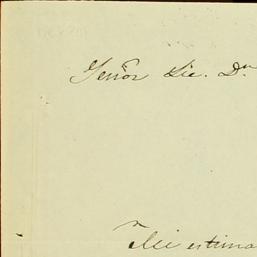 Señor Lic. Dn
Mi estima